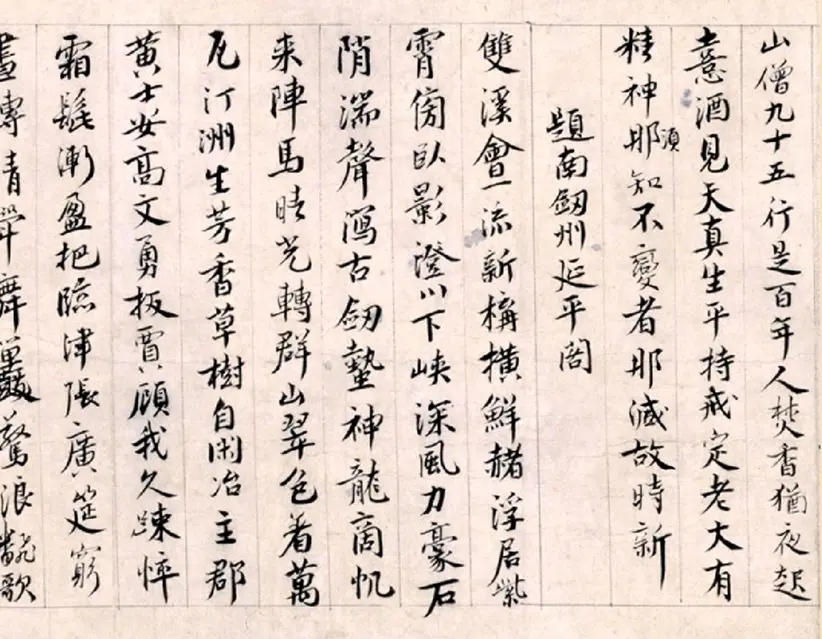 山僧九十五行是百年人焚香猶夜起
憙酒見天真生平持戒定老大有
精神耶須知不變者耶減故時新
題南劔州延平閣
雙溪會一流新構橫鮮赭浮居紫
霄傍臥影澄川下峽深風力豪石
陗湍聲瀉古劔蟄神龍商帆
来陣馬晴光轉群山翠色著萬
瓦汀洲生芳香草樹自閑冶主郡
黄士安高文勇扳賈顧我久踈悴
霜髭漸盈把臨津張廣筵窮
晝傳清斝舞驚浪翻歌